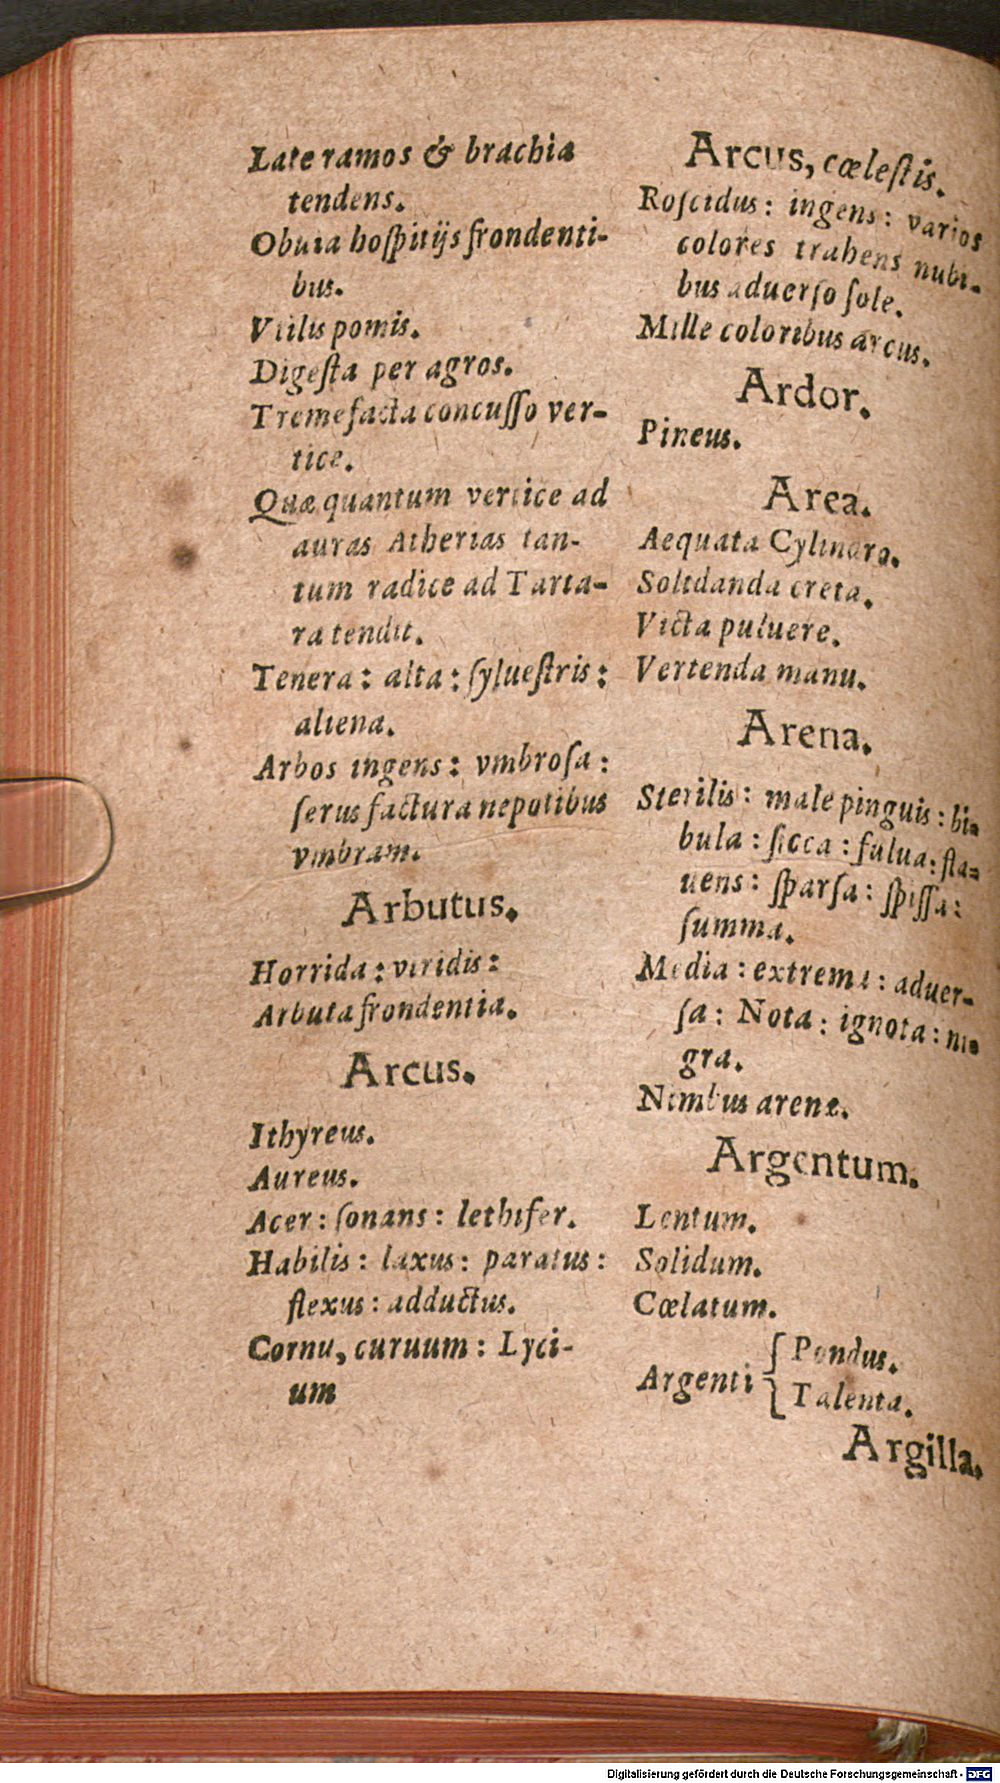 Late ramos & brachia
tendens.
Obuia hoſpitijs frondenti-
bus.
Vtilis pomis.
Digeſta per agros.
Tremefacta concuſſo ver-
tice.
Quæ quantum vertice ad
auras Atherias tan-
tum radice ad Tarta-
ra tendit.
Tenera: alta: ſylueſtris:
aliena.
Arbos ingens: vmbroſa:
ſerus factura nepotibus
vmbram.
Arbutus.
Horrida: viridis:
Arbuta frondentia.
Arcus.
Ithyreus.
Aureus.
Acer: ſonans: lethifer.
Habilis: laxus: paratus:
flexus: adductus.
Cornu, curuum: Lyci-
um
Arcus, cœleſtis.
Roſcidus: ingens: varios
colores trahens nubi-
bus aduerſo ſole.
Mille coloribus arcus.
Ardor.
Pineus.
Area.
Aequata Cylindro.
Solidanda creta.
Victa puluere.
Vertenda manu.
Arena.
Sterilis: male pinguis: bi-
bula: ſicca: fulua: fla-
uens: ſparſa: ſpiſſa:
ſumma.
Media: extrema: aduer-
ſa: Nota: ignota: ni-
gra.
Nimbus arenæ.
Argentum.
Lentum.
Solidum.
Cœlatum.
Argenti { Pondus.
Talenta.
Argilla.
Digitalisierung gefördert durch die Deutsche Forschungsgemeinschaft - DFG